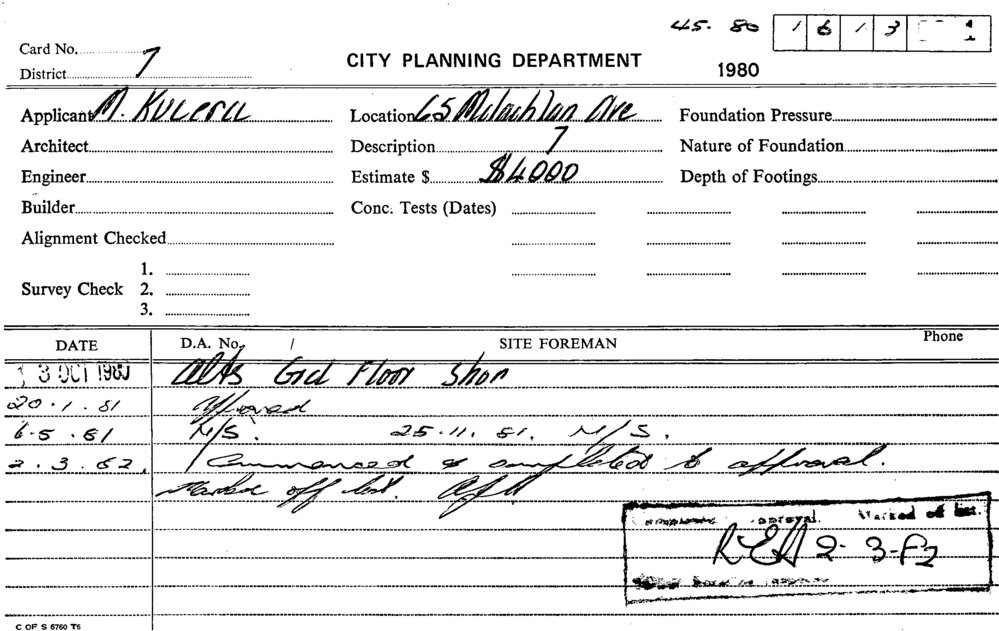 45. 80 1 6 1 3 1
Card No.
District 7
CITY PLANNING DEPARTMENT
1980
Applicant M. Kucera Location 65 Mclachlan Ave Foundation Pressure
Architect Description 7 Nature of Foundation
Engineer Estimate $ $4000 Depth of Footings
Builder Conc. Tests (Dates)
Alignment Checked
1.
Survey Check 2.
3.
DATE D.A. No. / SITE FOREMAN Phone
13 OCT 1980 Alts Grd Floor Shop
20.1.81 Approved
6.5.81 N/S. 25.11.81. N/S.
2.3.82. Commenced & completed to approval.
Marked off list.
approval. Marked off list.
2.3.82
C OF S 6760 T6